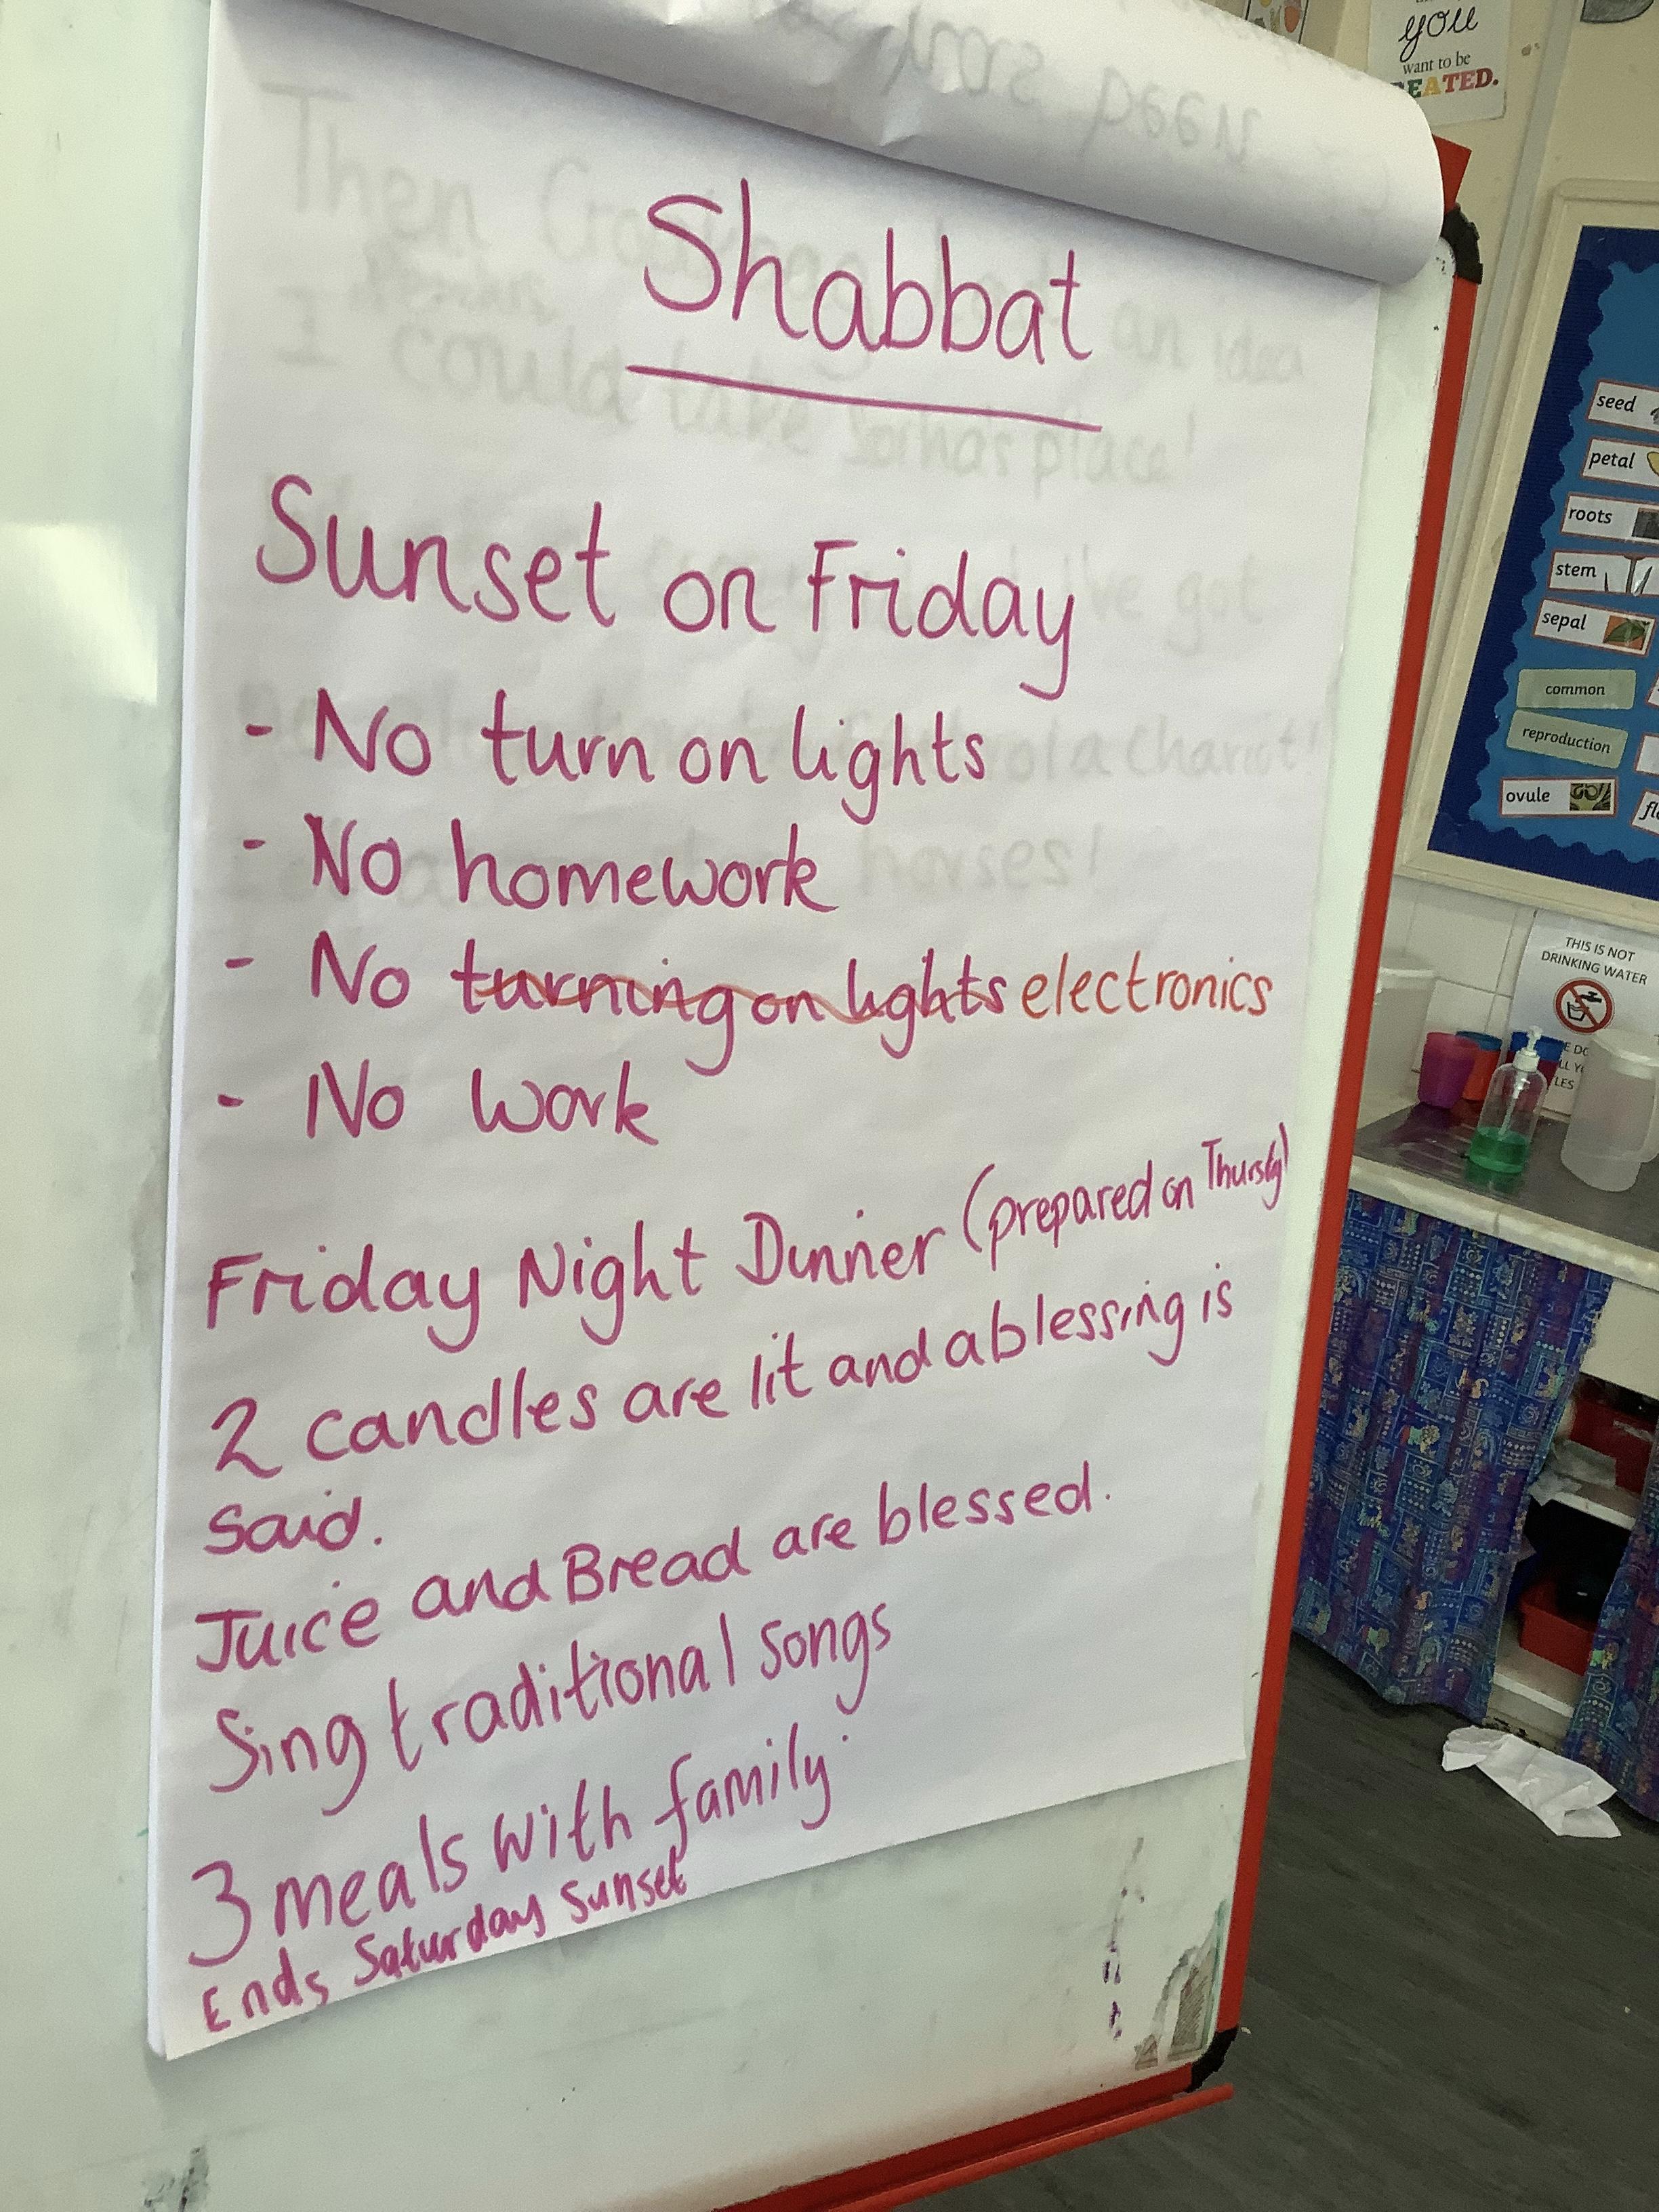 you
want to be
Shabbat
Sunset on Friday
- No turn on lights
- No homework
- No turning on lights electronics
- No work
Friday Night Dinner (prepared on Thursday)
2 candles are lit and a blessing is
said.
Juice and Bread are blessed.
Sing traditional songs
3 meals with family.
Ends Saturday Sunset
seed
petal
roots
stem
sepal
common
reproduction
ovule
THIS IS NOT
DRINKING WATER